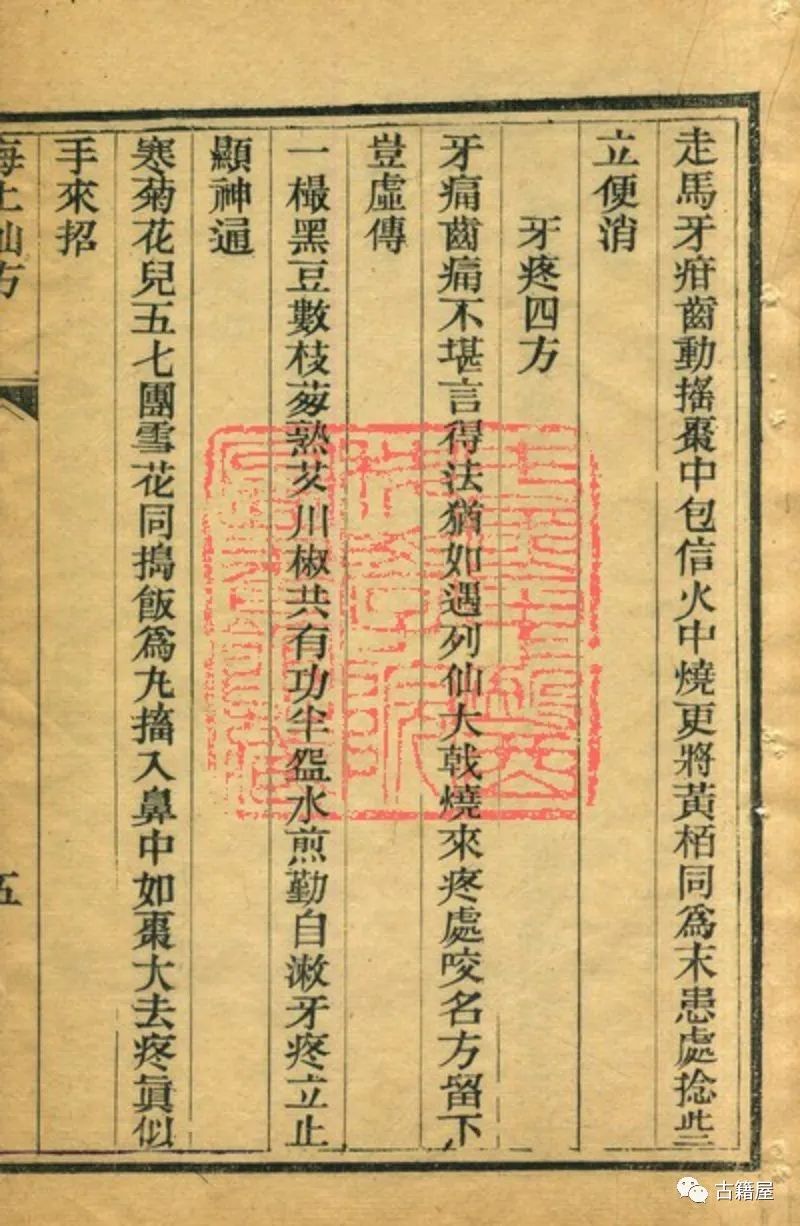 走馬牙疳齒動搖棗中包信火中燒更將黃栢同為末患處捻些
立便消
牙疼四方
牙痛齒痛不堪言得法猶如遇列仙大戟燒來疼處咬名方留下
豈虛傳
一樶黑豆數枝葱熟艾川椒共有功半盌水煎勤自漱牙疼立止
顯神通
寒菊花兒五七團雪花同搗飯為丸搐入鼻中如棗大去疼眞似
手來招
海上仙方
五
古籍屋